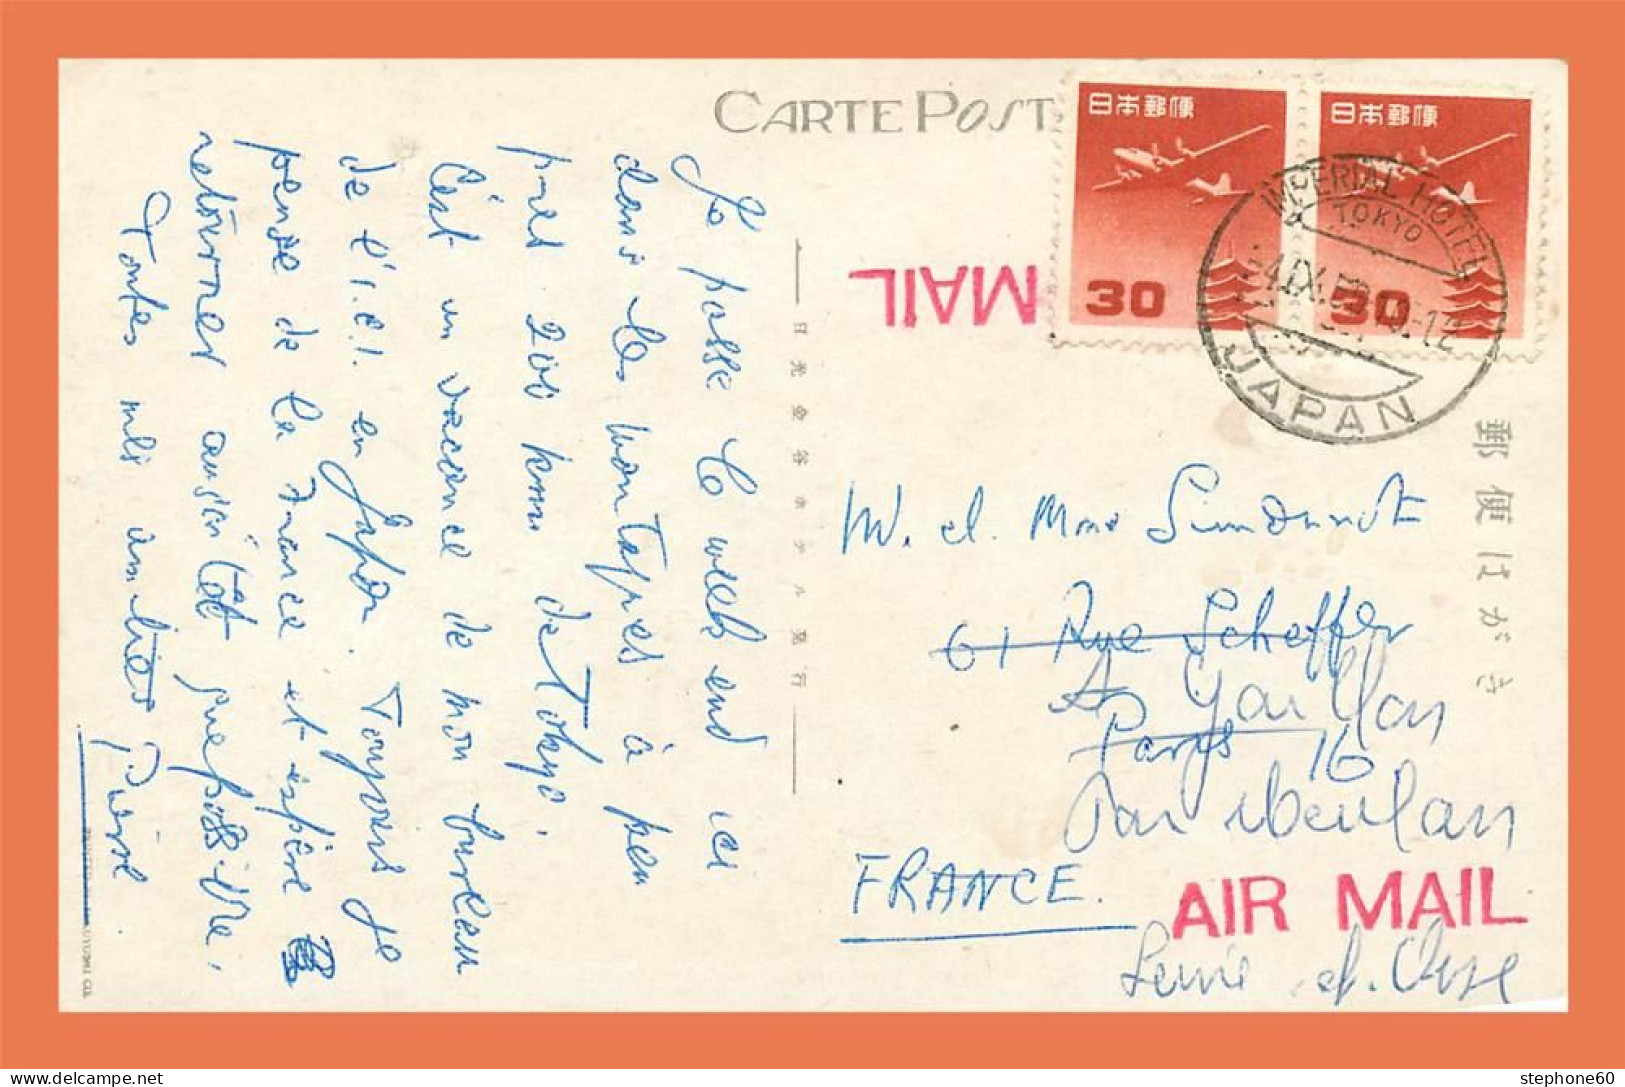 CARTE POST
日本郵便
30
日本郵便
30
IMPERIAL HOTEL
TOKYO
JAPAN
MAIL
郵便はがき
日光金谷ホテル発行
Je passe le week end ici
dans les montagnes à peu
près 200 kms de Tokyo.
C'est un vacance de mon bureau
de l'i.c.i. en Japon. Toujours je
pense de la France et espère
retourner aussitôt que possible.
Toutes mes amitiés
Pierre
M. et Mme
61 Rue Scheffer
Paris 16
Par Meulan
FRANCE.
AIR MAIL
Seine et Oise
stephone60